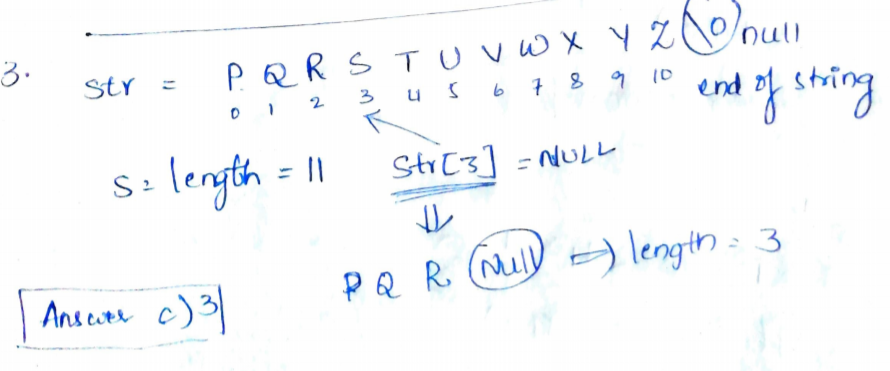 3. str = P Q R S T U V W X Y Z \0 null
0 1 2 3 4 5 6 7 8 9 10 end of string
S = length = 11 Str[3] = NULL
⇓
P Q R Null ⇒ length = 3
Answer c) 3